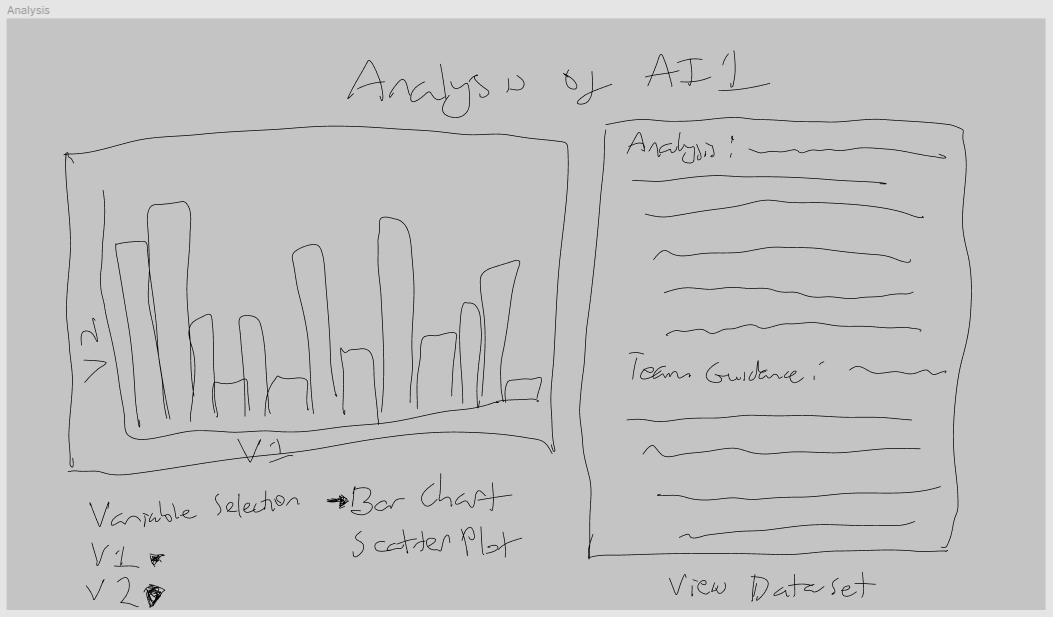 Analysis
Analysis of AI1
V2
V1
Variable Selection
V1
V2
Bar Chart
Scatter Plot
Analysis:
Team Guidance:
View Dataset